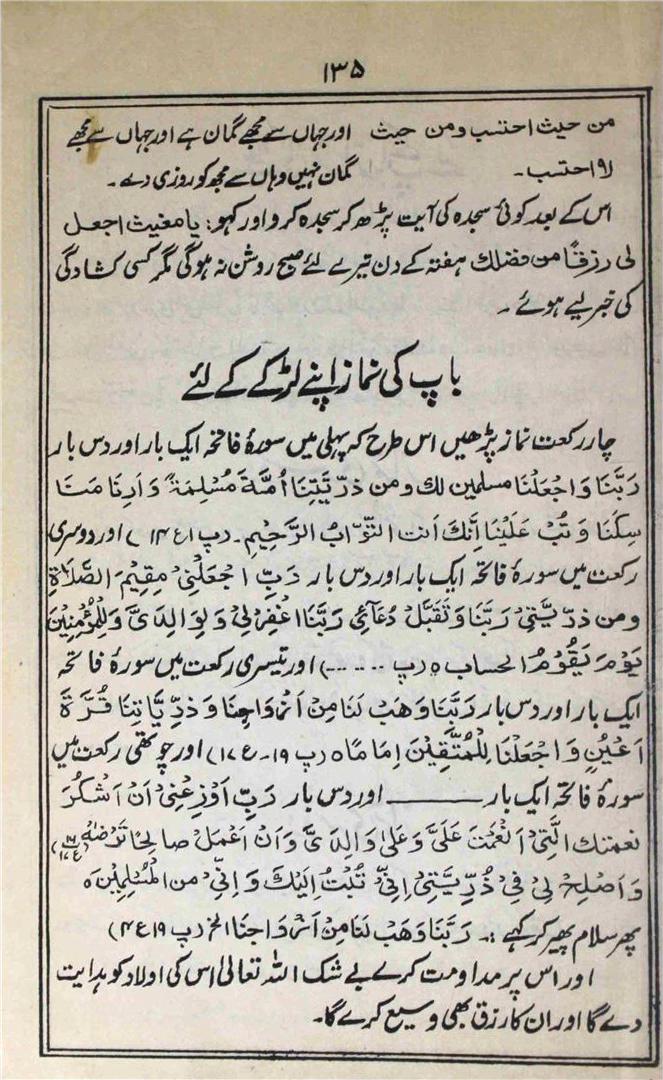 ۱۳۵
من حیث احتسب ومن حیث اور جہاں سے مجھے گمان ہے اور جہاں سے مجھے
لا احتسب۔ گمان نہیں وہاں سے مجھ کو روزی دے۔
اس کے بعد کوئی سجدہ کی آیت پڑھ کر سجدہ کرو اور کہو: یا مغیث اجعل
لی رزقًا من فضلك ہفتہ کے دن تیرے لئے صبح روشن نہ ہوگی مگر کسی کشادگی
کی خبر لیے ہوئے۔
باپ کی نماز اپنے لڑکے کے لئے
چار رکعت نماز پڑھیں اس طرح کہ پہلی میں سورۂ فاتحہ ایک بار اور دس بار
رَبَّنَا وَاجْعَلْنَا مسلمین لك ومن ذرّیّتِنَا اُمَّةً مُسْلِمَةً وَاَرِنَا مَنَا
سِکَنَا وَتُبْ عَلَیْنَا اِنَّكَ اَنتَ التَّوَّابُ الرَّحِیْم۔ (پ ۱ ع ۱۴) اور دوسری
رکعت میں سورۂ فاتحہ ایک بار اور دس بار رَبِّ اجْعَلْنِیْ مقِیْمَ الصَّلَاةِ
ومن ذرّیَّتِیْ رَبَّنَا وَتَقَبَّلْ دُعَائِی رَبَّنَا اغْفِرْلِیْ وَلِوَالِدَیَّ وَلِلْمُؤْمِنِیْنَ
یَوْمَ یَقُوْمُ الحساب ہ (پ ........) اور تیسری رکعت میں سورۂ فاتحہ
ایک بار اور دس بار رَبَّنَا وَهَبْ لَنَا مِنْ اَزْوَاجِنَا وَذُرِّیَّاتِنَا قُرَّةَ
اَعْیُنٍ وَاجْعَلْنَا لِلْمُتَّقِیْنَ اِمَامًا ہ (پ ۱۹۔ع ۱۷) اور چوتھی رکعت میں
سورۂ فاتحہ ایک بار ــــــــ اور دس بار رَبِّ اَوْزِعْنِیْ اَنْ اَشْکُرَ
نعمتك الَّتِیْ اَنْعَمْتَ عَلَیَّ وَعَلیٰ وَالِدَیَّ وَاَنْ اَعْمَلَ صَالِحًا تَرْضٰهُ
وَاَصْلِحْ لِیْ فِیْ ذُرِّیَّتِیْ اِنِّیْ تُبْتُ اِلَیْكَ وَاِنِّیْ من الْمُسْلِمِیْنَ ہ
پھر سلام پھیر کر کہے :۔ رَبَّنَا وَهَبْ لَنَا مِنْ اَزْوَاجِنَا الخ (پ ۱۹ ع ۴)
اور اس پر مداومت کرے بے شک اللہ تعالیٰ اس کی اولاد کو ہدایت
دے گا اور ان کا رزق بھی وسیع کرے گا۔